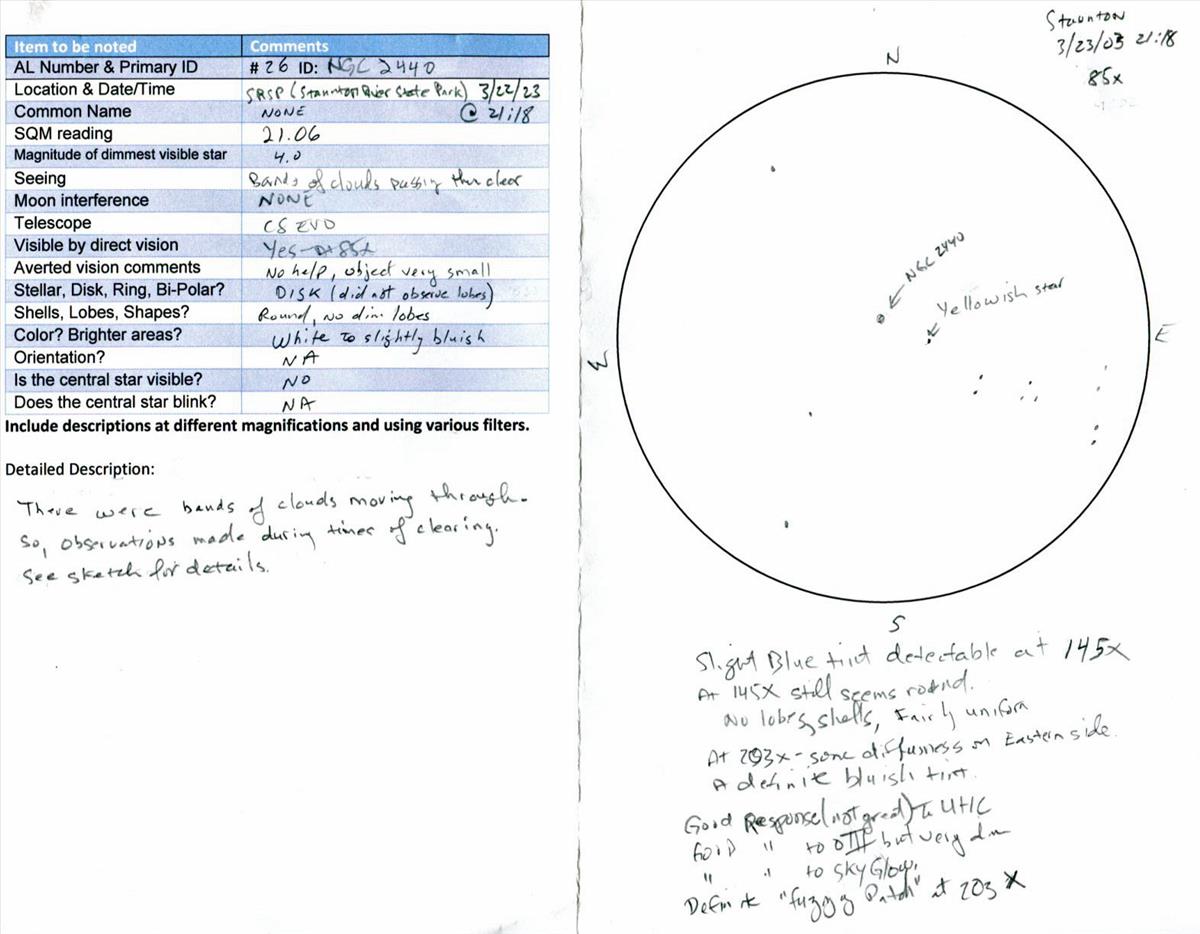 Item to be noted Comments
AL Number & Primary ID # 26 ID: NGC 2440
Location & Date/Time SRSP (Staunton River State Park) 3/22/23
Common Name NONE @ 21:18
SQM reading 21.06
Magnitude of dimmest visible star 4.0
Seeing Bands of clouds passing thru clear
Moon interference NONE
Telescope C8 EVO
Visible by direct vision Yes - at 85x
Averted vision comments No help, object very small
Stellar, Disk, Ring, Bi-Polar? DISK (did not observe lobes)
Shells, Lobes, Shapes? Round, No dim lobes
Color? Brighter areas? White to slightly bluish
Orientation? NA
Is the central star visible? NO
Does the central star blink? NA
Include descriptions at different magnifications and using various filters.
Detailed Description:
There were bands of clouds moving through.
So, observations made during times of clearing.
See sketch for details.
Staunton
3/23/03 21:18
85x
N
NGC 2440
Yellowish star
E
W
S
Slight Blue tint detectable at 145x
At 145X still seems round.
No lobes, shells, Fairly uniform
At 203x - some diffusness on Eastern side.
A definite bluish tint.
Good Response (not great) to UHC
Good " to OIII but very dim
" " to SkyGlow.
Definite "fuzzy Patch" at 203 X